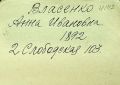 Власенко
Анна Ивановна
1892
2 Слободская 103